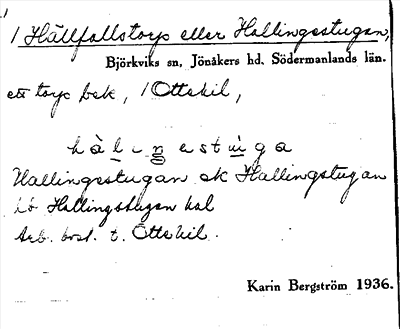 1 Hällfallstorp eller Hallingsstugan,
Björkviks sn, Jönåkers hd, Södermanlands län.
ett torp bek, 1 Ottekil,
hàlinestùga
Hallingsstugan ok Hallingstugan
Hallingstugan kal
Arb. bost. t. Ottekil.
Karin Bergström 1936.